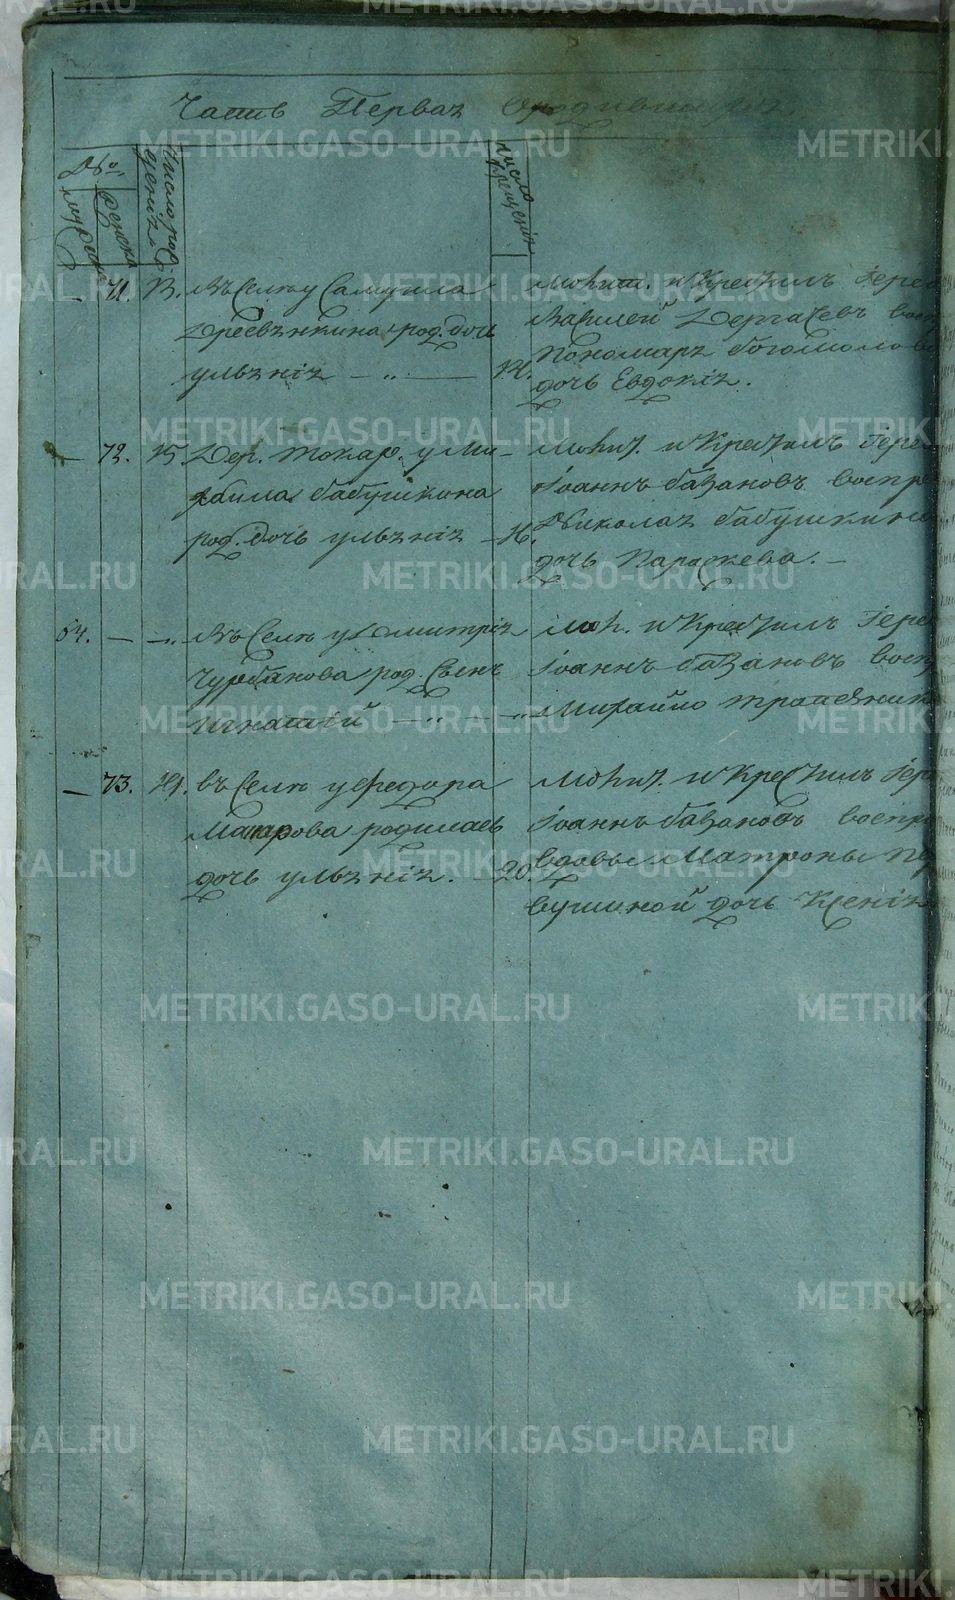 Часть Первая О родившихся
№.
мужеска
женска
число рождения
число крещения
71. 13. Въ Селѣ у Самуила
Деревянкина род. дочь
улѣнія 14.
Мотит. и Крестилъ Іерей
Василей Дергачевъ
Пономаря Богомолова
дочь Евдокія.
72. 15. Дер. Токар. у Ми-
хаила бабушкина
род. дочь улѣнія 16.
Молит. и Крестилъ Іерей
Іоаннъ базановъ воспр
Николая бабушкина
дочь Параскева.
54. въ Селѣ у Димитрія
Чурбанова род. Сынъ
Игнатій
Мол. и Крестилъ Іерей
Іоаннъ базановъ
Михайло трапезник
73. 19. въ Селѣ у Федора
Макарова родилась
дочь улѣнія. 20.
Молит. и Крестилъ Іерей
Іоаннъ базановъ воспр
вдовы Матроны
дочь Ксенія
METRIKI.GASO-URAL.RU